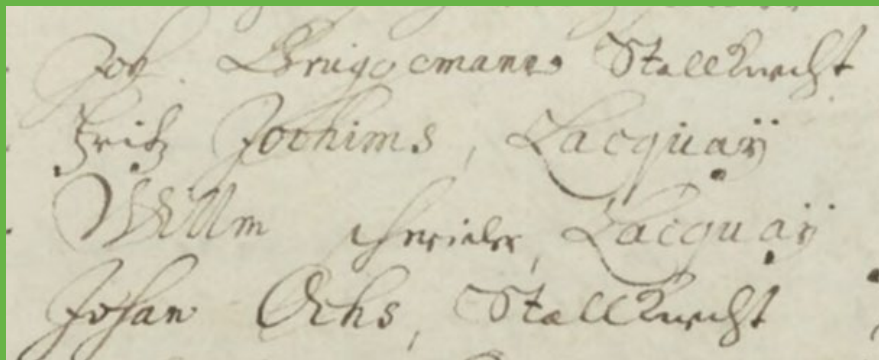 Joh. Bruggemann Stallknecht
Fritz Jochims, Lacquaÿ
Willm, Lacquaÿ
Johan Ochs, Stallknecht